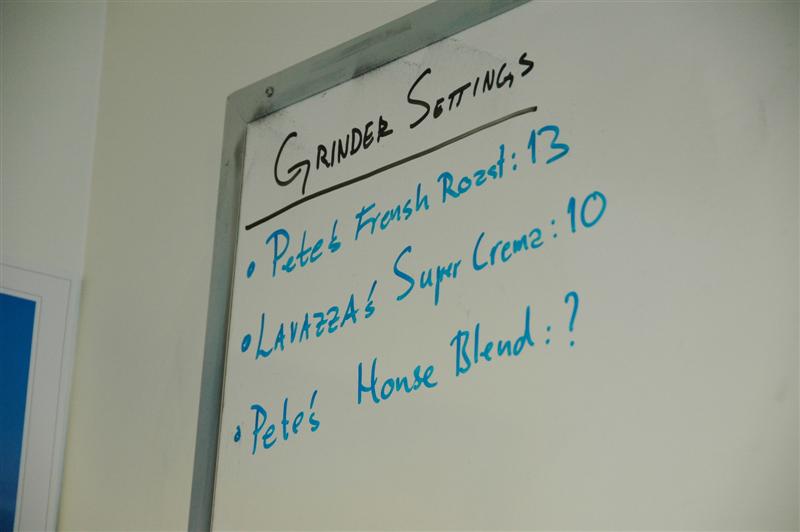 GRINDER SETTINGS
• Pete's Frensh Roast: 13
• LAVAZZA's Super Crema: 10
• Pete's House Blend: ?